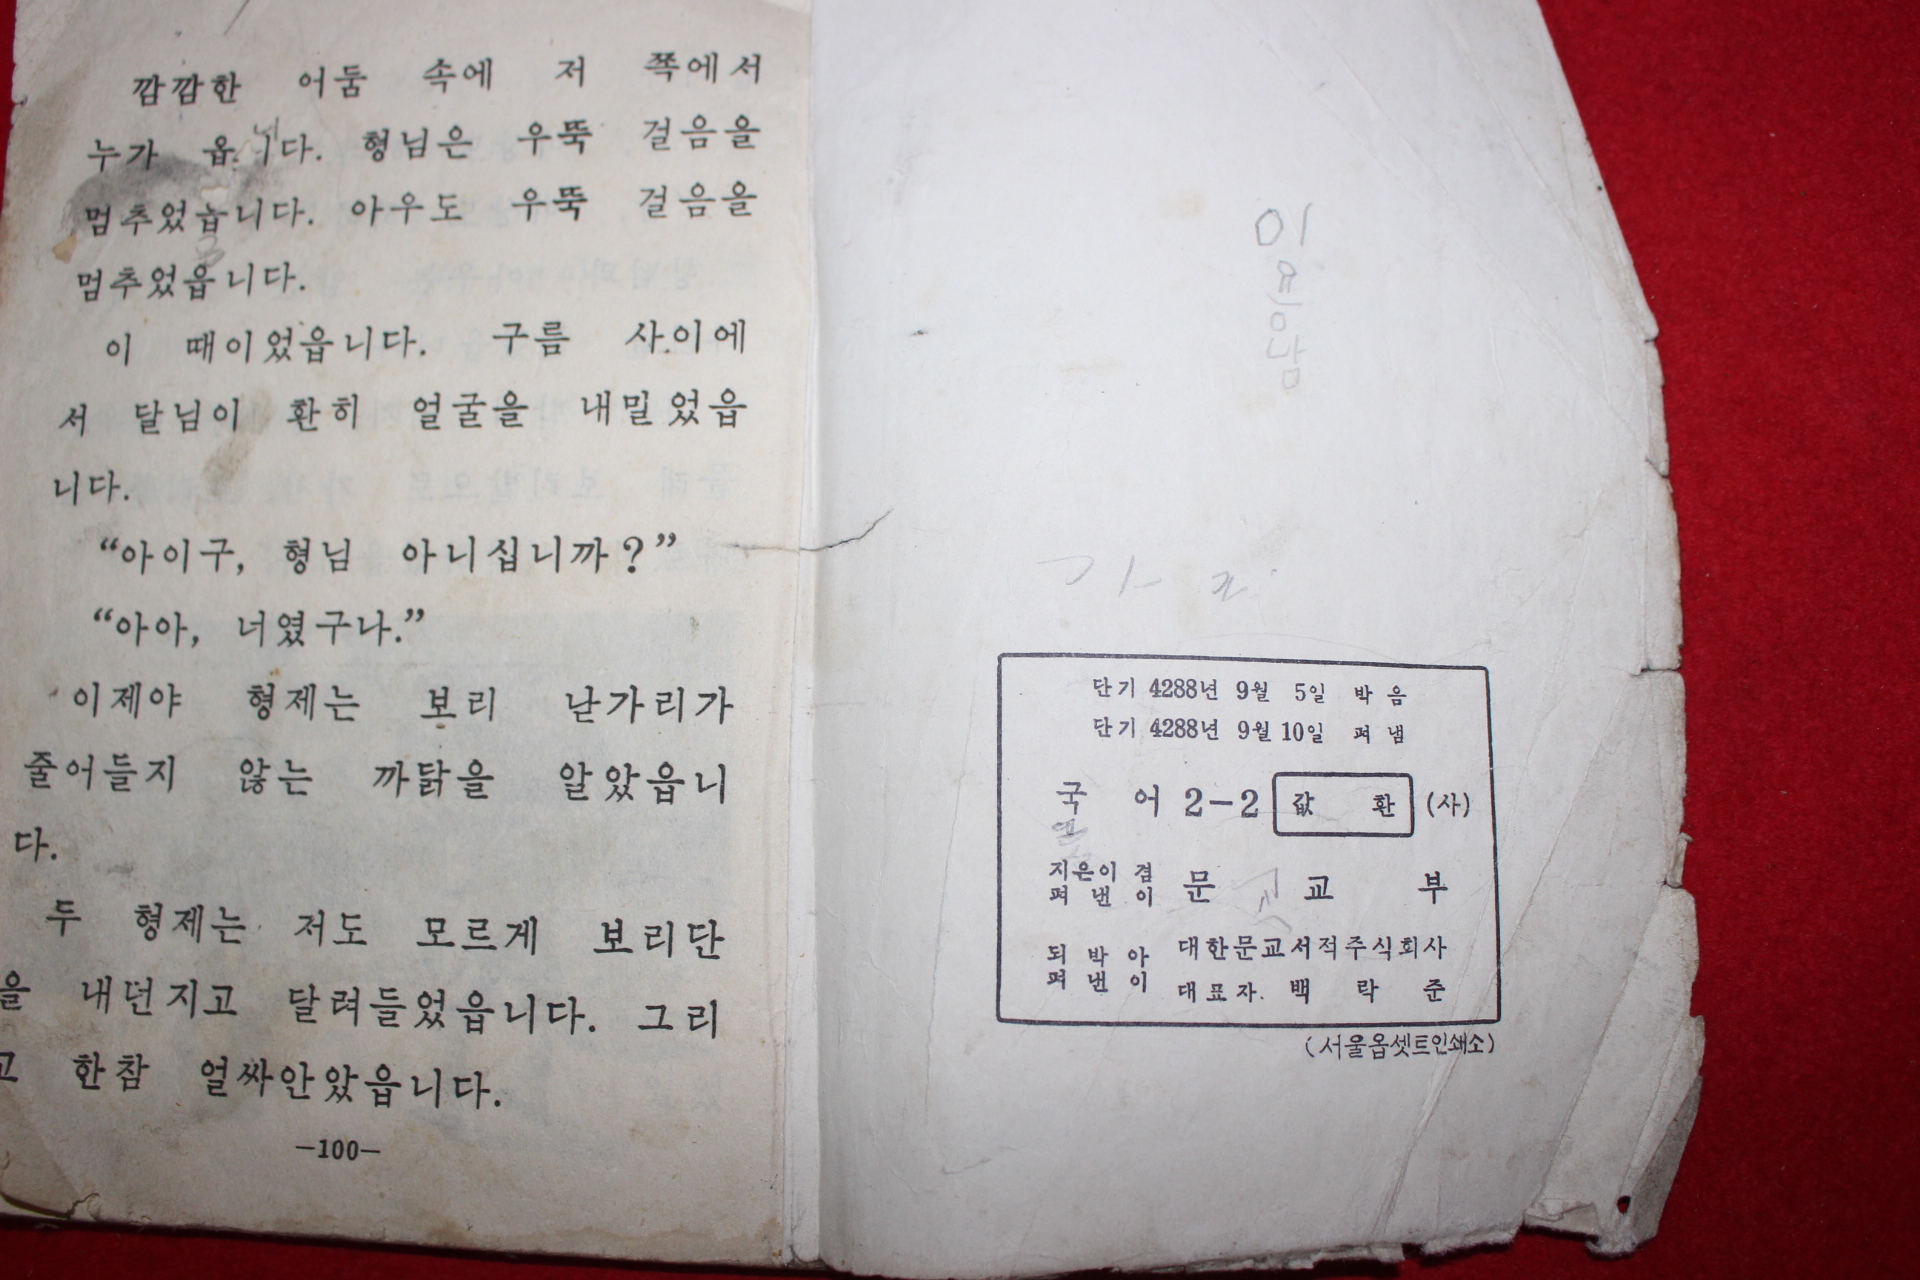 깜깜한 어둠 속에 저 쪽에서
누가 옵니다. 형님은 우뚝 걸음을
멈추었습니다. 아우도 우뚝 걸음을
멈추었읍니다.
이 때이었읍니다. 구름 사이에
서 달님이 환히 얼굴을 내밀었읍
니다.
“아이구, 형님 아니십니까?”
“아아, 너였구나.”
이제야 형제는 보리 낟가리가
줄어들지 않는 까닭을 알았읍니
다.
두 형제는 저도 모르게 보리단
을 내던지고 달려들었읍니다. 그리
고 한참 얼싸안았읍니다.
—100—
이용남
단기 4288년 9월 5일 박음
단기 4288년 9월 10일 펴냄
국 어 2—2 값 환 (사)
지은이 겸
펴 낸 이 문 교 부
되 박 아
펴 낸 이
대한문교서적주식회사
대표자 백 락 준
(서울옵셋트인쇄소)